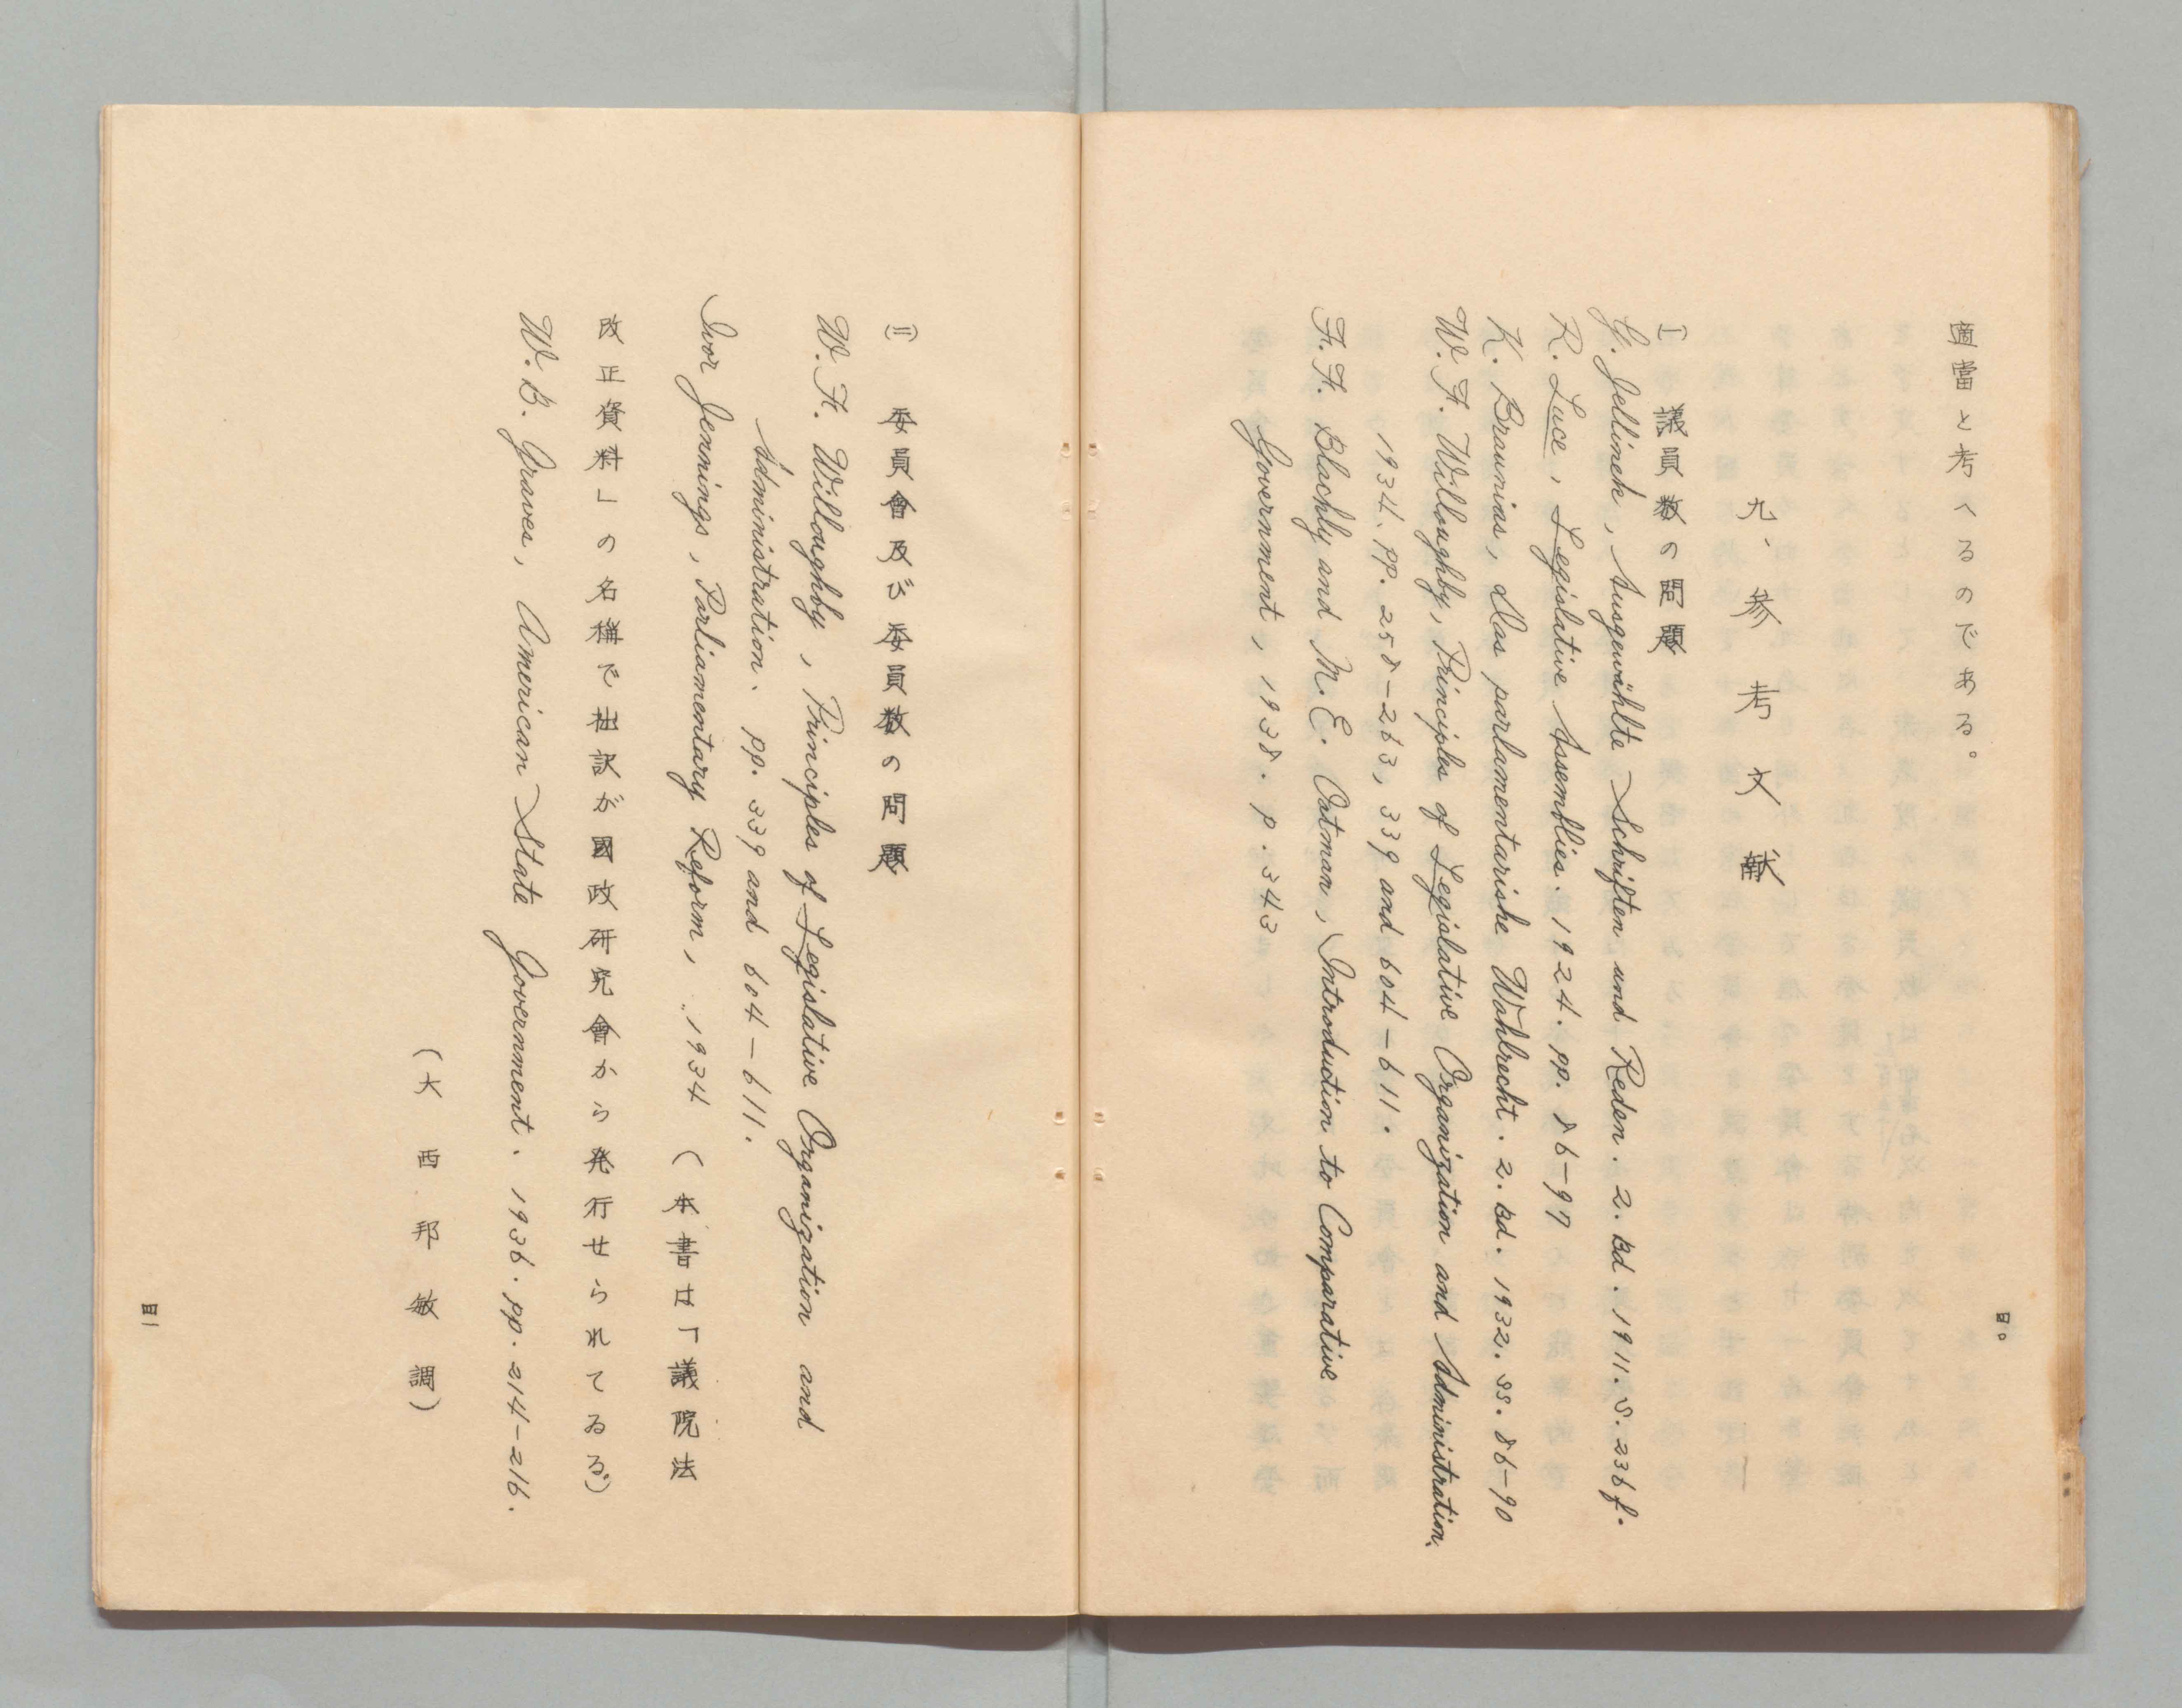 適當と考へるのである。
九、参考文献
(一) 議員数の問題
G. Jellinek, Ausgewählte Schriften und Reden. 2. Bd. 1911. S. 236 f.
R. Luce, Legislative Assemblies. 1924. pp. 86-97
K. Braunias, Das parlamentarishe Wahlrecht. 2. Bd. 1932. SS. 86-90
W. F. Willoughby, Principles of Legislative Organization and Administration.
1934. pp. 258-263, 339 and 604-611.
F. F. Blachly and M. E. Oatman, Introduction to Comparative
Government, 1938. p. 343
四〇
(二) 委員會及び委員数の問題
W. F. Willoughby, Principles of Legislative Organization and
Administration. pp. 339 and 604-611.
Ivor Jennings, Parliamentary Reform, 1934 (本書は「議院法
改正資料」の名稱で拙訳が國政研究會から発行せられてゐる)
W. B. Graves, American State Government. 1936. pp. 214-216.
(大西邦敏調)
四一